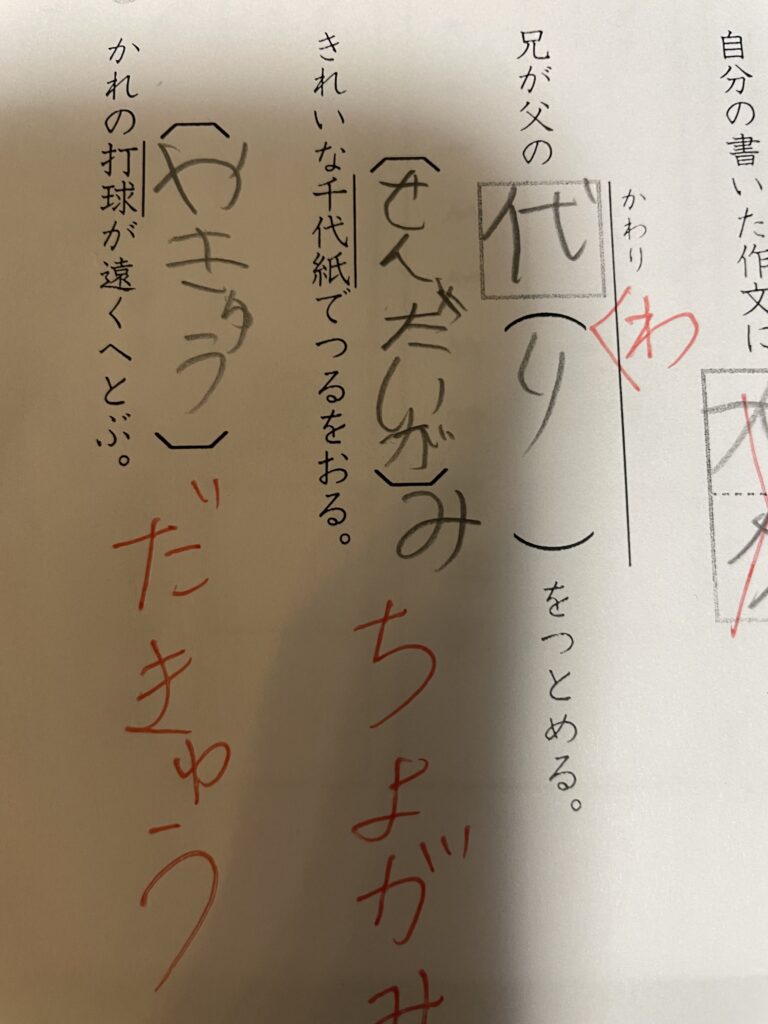 自分の書いた作文に
かわり
兄が父の代(り)をつとめる。
わ
(せんだいがみ)
きれいな千代紙でつるをおる。
ちよがみ
(やきゅう)
かれの打球が遠くへとぶ。
だきゅう